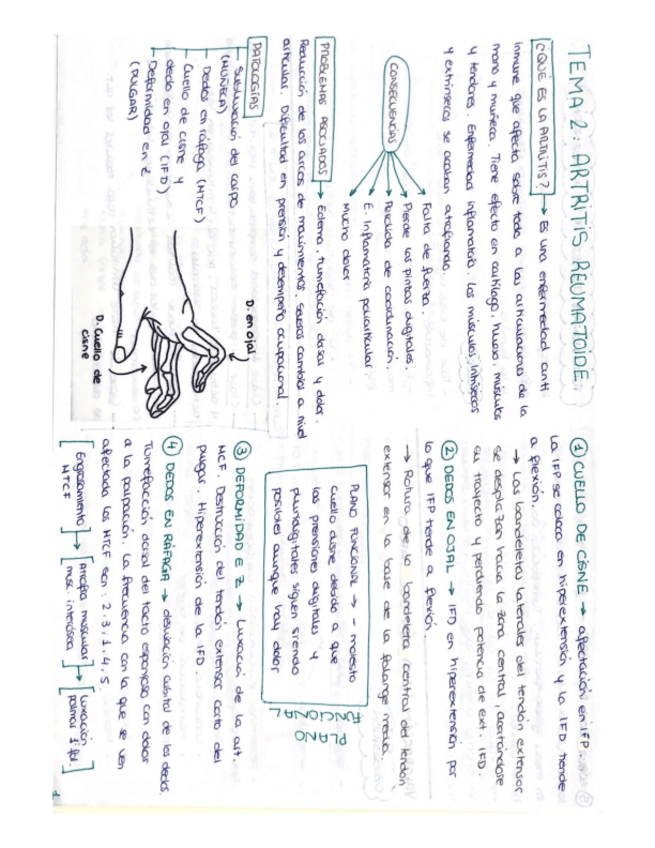 TEMA 2: ARTRITIS REUMATOIDE
¿QUÉ ES LA ARTRITIS? → Es una enfermedad anti
inmune que afecta sobre todo a las articulaciones de la
mano y muñeca. Tiene efecto en cartílago, hueso, músculos
y tendones. Enfermedad inflamatoria. Los músculos intrínsecos
y extrínsecos se acaban atrofiando.
CONSECUENCIAS
Falta de fuerza.
Pierde las pinzas digitales.
Pérdida de coordinación.
E. Inflamatoria poliarticular.
Mucho dolor
PROBLEMAS ASOCIADOS → Edema, tumefación dorsal y dolor.
Reducción de los arcos de movimientos. Severos cambios a nivel
articular. Dificultad en prensión y desempeño ocupacional.
PATOLOGÍAS
Subluxación del carpo
(MUÑECA)
Dedos en ráfaga (MTCF)
Cuello de cisne y
dedo en ojal (IFD)
Deformidad en Z
(PULGAR)
D. en ojal
D. Cuello de
cisne
① CUELLO DE CISNE → afectación en IFP.
La IFP se coloca en hiperextensión y la IFD tiende
a flexión.
→ Las bandeletas laterales del tendón extensor
se desplazan hacia la zona central, acortándose
su trayecto y perdiendo potencia de ext. IFD.
② DEDOS EN OJAL → IFD en hiperextensión por
lo que IFP tiende a flexión.
→ Rotura de la bandeleta central del tendón
extensor en la base de la falange media.
PLANO FUNCIONAL → - molesto
cuello cisne debido a que
las prensiones digitales y
pluridigitales siguen siendo
posibles aunque hay dolor
PLANO
FUNCIONAL
③ DEFORMIDAD E Z → Luxación de la art.
MCF. Destrucción del tendón extensor corto del
pulgar. Hiperextensión de la IFD.
④ DEDOS EN RÁFAGA → desviación cubital de los dedos.
Tumefacción dorsal del tacto esponjoso con dolor
a la palpación. La frecuencia con la que se ven
afectada las MTCF son: 2, 3, 1, 4, 5.
[Engrosamiento MTCF] → [Atrofia muscular musc. interósea] → [Luxación palmar 1ª fal.]